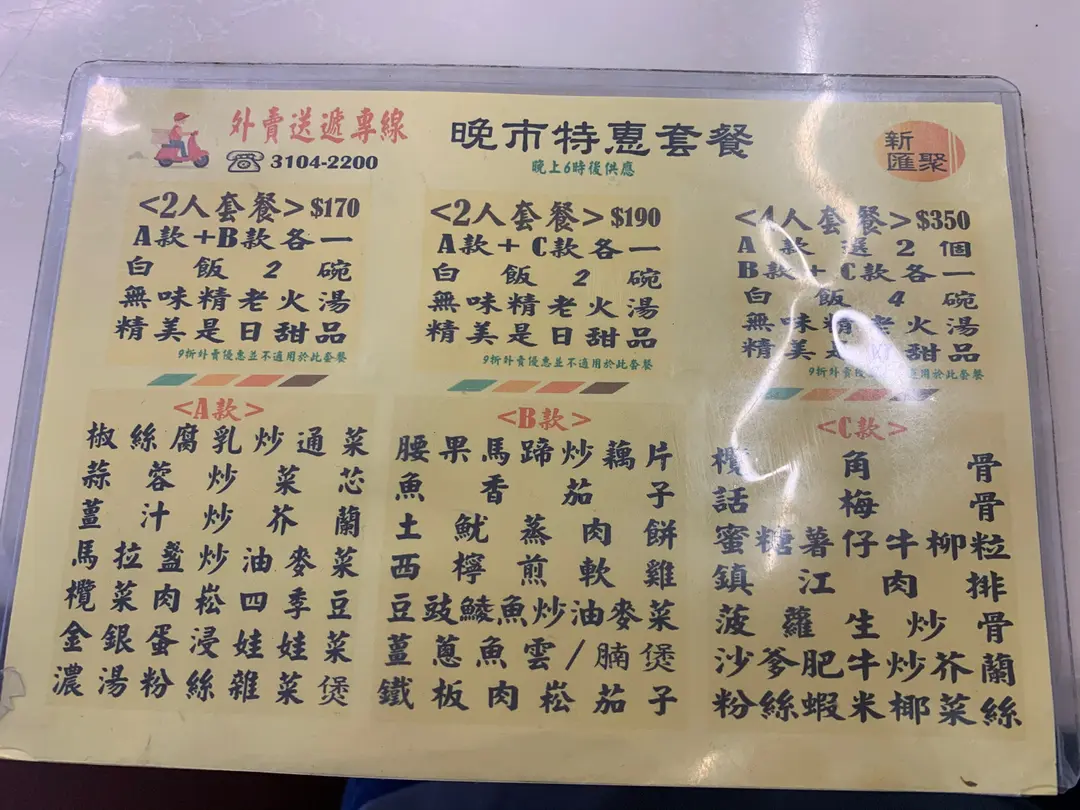 外賣送遞專線
3104-2200
晚市特惠套餐
晚上6時後供應
新
匯聚
<2人套餐> $170
A款+B款各一
白飯2碗
無味精老火湯
精美是日甜品
9折外賣優惠並不適用於此套餐
<2人套餐> $190
A款+C款各一
白飯2碗
無味精老火湯
精美是日甜品
9折外賣優惠並不適用於此套餐
<4人套餐> $350
A款選2個
B款+C款各一
白飯4碗
無味精老火湯
精美是 甜品
9折外賣優 用於此套餐
<A款>
椒絲腐乳炒通菜
蒜蓉炒菜芯
薑汁炒芥蘭
馬拉盞炒油麥菜
欖菜肉崧四季豆
金銀蛋浸娃娃菜
濃湯粉絲雜菜煲
<B款>
腰果馬蹄炒藕片
魚香茄子
土魷蒸肉餅
西檸煎軟雞
豆豉鯪魚炒油麥菜
薑蔥魚雲/腩煲
鐵板肉崧茄子
<C款>
欖角骨
話梅骨
蜜糖薯仔牛柳粒
鎮江肉排
菠蘿生炒骨
沙爹肥牛炒芥蘭
粉絲蝦米椰菜絲